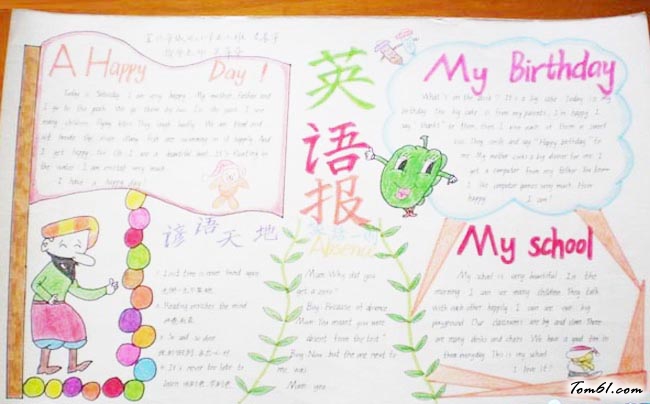 A Happy Day!
Today is Saturday. I am very happy. My mother, father and
I go to the park. We go there by bus. In the park, I see
many children flying kites. They laugh loudly. We are tired and
sit beside the river. Many fish are swimming in it happily. And
I get happy, too. Oh! I see a beautiful boat. It's floating in
the water. I am excited very much.
I have a happy day!
英语报
My Birthday
What's on the desk? It's a big cake. Today is my
birthday. The big cake is from my parents. I'm happy. I
say "thanks" to them, then I give each of them a sweet
kiss. They smile and say "Happy birthday" to
me. My mother cooks a big dinner for me. I
get a computer from my father. You know
I like computer games very much. How
happy I am!
谚语天地
1. Lost time is never found again.
2. Reading enriches the mind.
开卷有益
3.
4. It's never too late to
learn.
英语一则
Absence
Mum: Why did you
get a zero?
Boy: Because of absence.
Mum: You mean you were
absent from the test?
Boy: No, but the one next to
me was.
Mum:
My school
My school is very beautiful. In the
morning, I can see many children. They talk
with each other happily. I can see our big
playground. Our classrooms are big and clean. There
are many desks and chairs. We have a good time in
them everyday. This is my school.
I love it!
Tom61.com